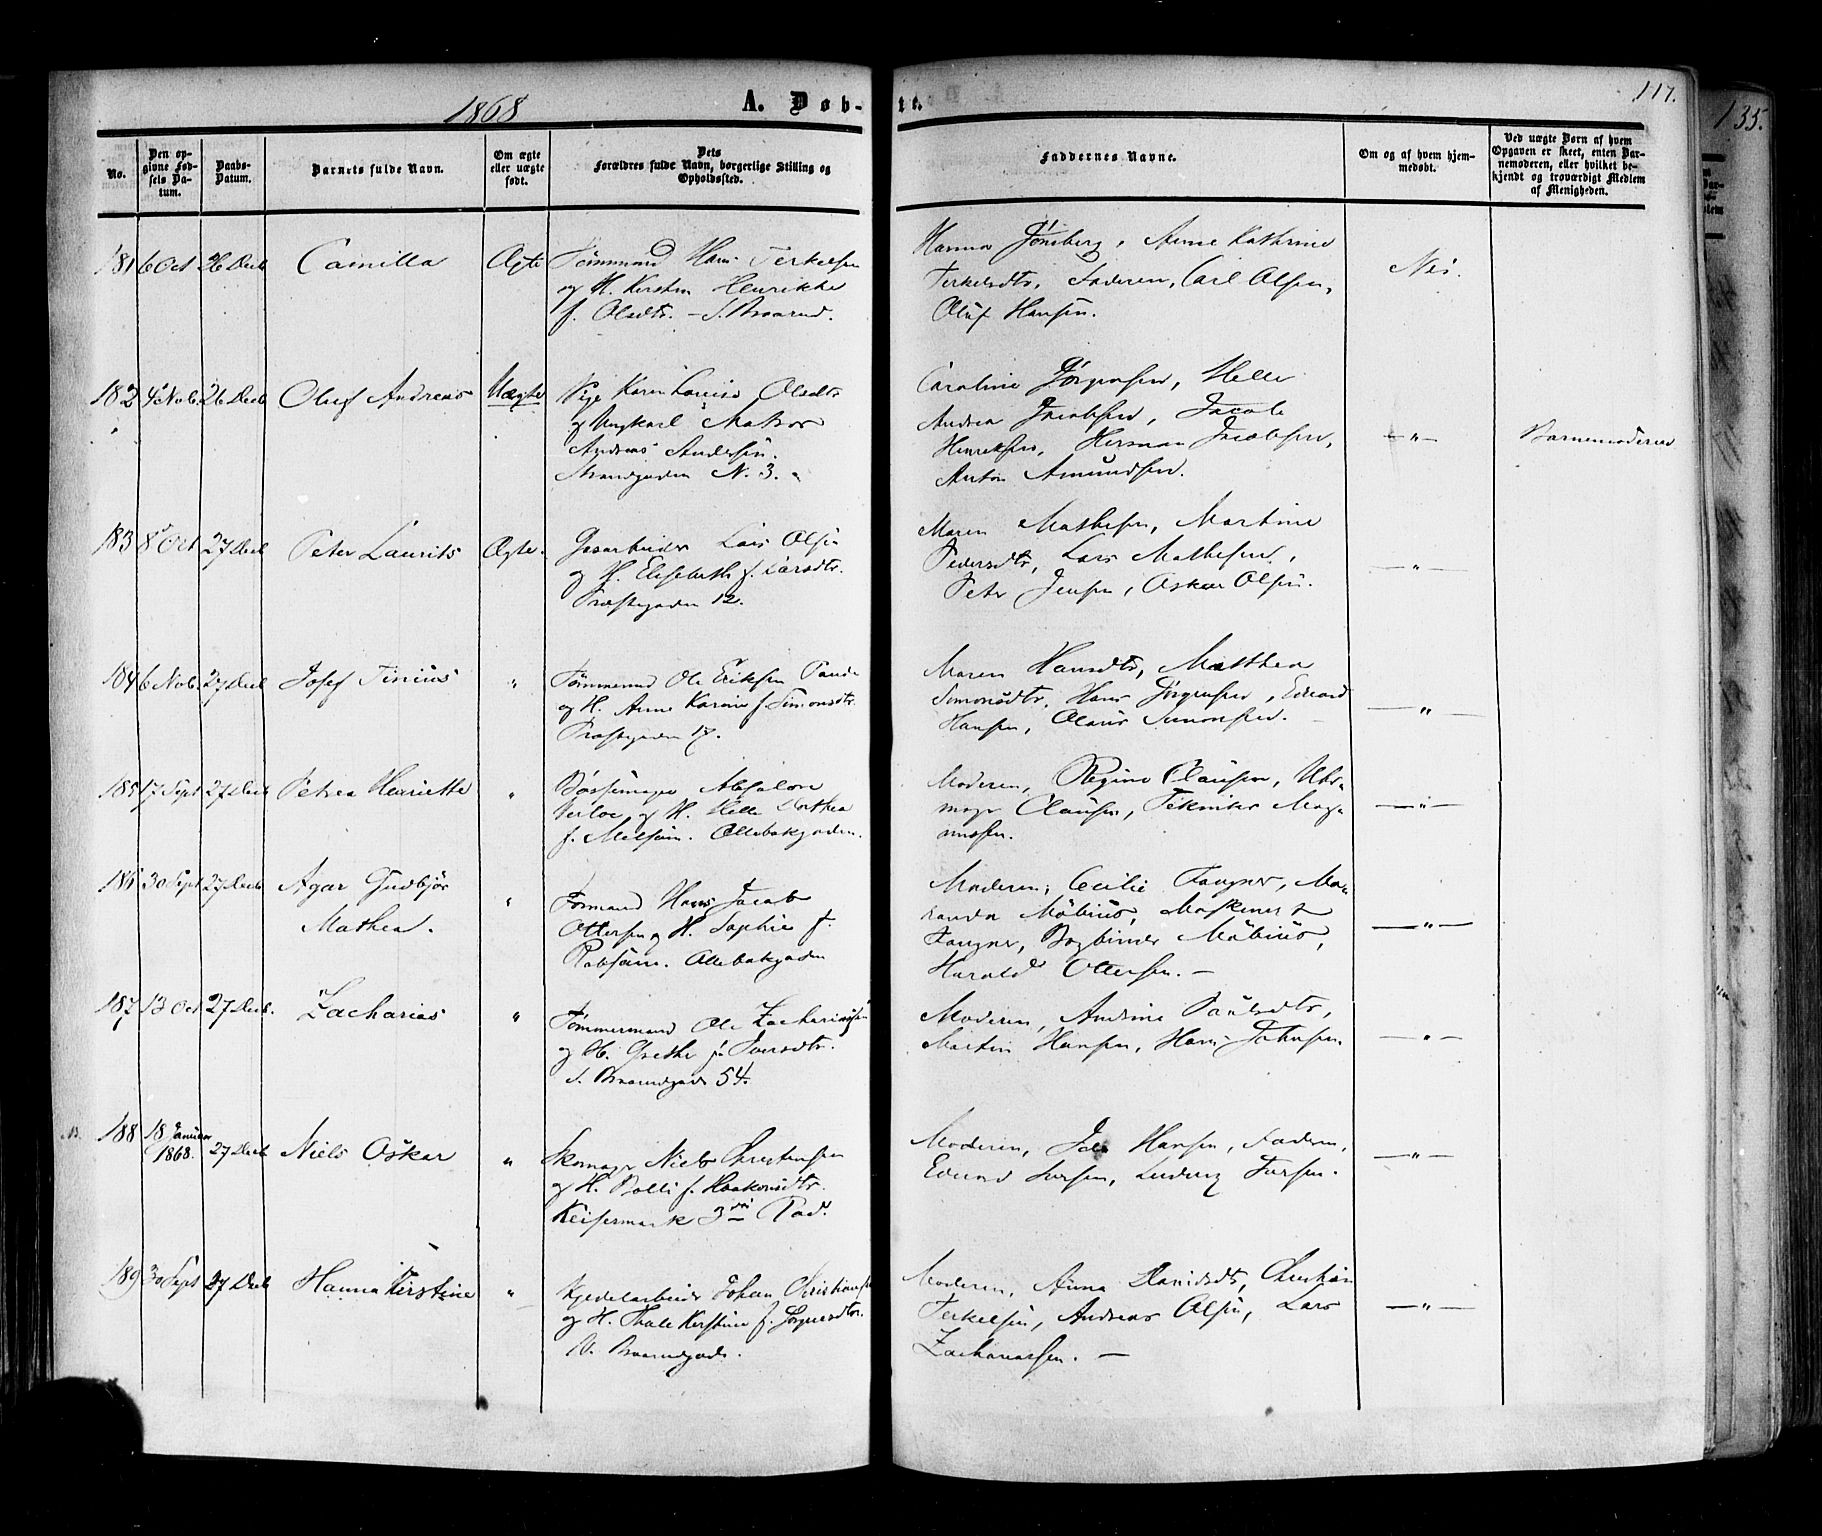 1868
A. Døb-
te.
117.
135.
No.
Den op-
givne Fød-
sels Da-
tum.
Daabs-
Datum.
Barnets fulde Navn.
Om ægte
eller uægte
født.
Dets
Forældres fulde Navn, borgerlige Stilling og
Opholdssted.
Faddernes Navne.
Om og af hvem hjem-
medøbt.
Ved uægte Børn af hvem
Opgaven er skeet, enten Bar-
nemoderen, eller hvilket be-
kjendt og troværdigt Medlem
af Menigheden.
181 6 Oct 26 Decb Camilla Ægte Tømmmand Hans Terkelsen
og H. Kirstin Henrikke
f. Olsdtr. - S. Braarud.
Hanna Jønsberg, Anne Kathrine
Terkelsdtr, Faderen, Carl Olsen,
Oluf Hansen.
Nei.
182 4 Nob. 26 Decb Oluf Andreas Uægte Pige Karen Lovise Olsdtr
og Ungkarl Matros
Andreas Andersen.
Strandgaden N. 3.
Caroline Jørgensen, Helle
Andrea Jacobsen, Jacob
Henriksen, Herman Jacobsen,
Anton Amundsen.
— " —
Barnemoderen
183 8 Oct 27 Decb Peter Laurits Ægte. Gasarbeider Lars Olsen
og H. Elisebeth f. Larsdtr.
Præstegaden 12.
Maren Mathesen, Martine
Pedersdtr, Lars Mathesen,
Peter Jensen, Oskar Olsen.
— " —
184 6 Nob. 27 Decb Josef Tinius " Tømmermd Ole Eriksen
og H. Anne Karine f. Simonsdtr.
Præstegaden 17.
Maren Hansdtr, Matthea
Simonsdtr, Hans Jørgensen, Edvard
Hansen, Olaus Simonsen.
— " —
185 17 Sept 27 Decb Petrea Henriette " Bøssemager Absalon
og H. Helle Dorthea
f. Nielsen. Ollebakgaden.
Moderen, Regine Clausen, Uhr-
mager Clausen, Tekniker Mag-
nussen.
— " —
186 30 Sept 27 Decb Agar Gudbjør
Mathea.
" Formand Hans Jacob
Ottersen og H. Sophie f.
Robsam. Ollebakgaden
Moderen, Cecilie Fougner,
Möbius, Maskinist
Fougner, Bogbinder Möbius,
Harald Ottersen. —
— " —
187 13 Oct 27 Decb. Zacharias " Tømmermand Ole Zachariassen
og H. Grethe f. Iversdtr.
S. Braarudgade 54.
Moderen, Andrine Paulsdtr,
Martin Hansen, Hans Johnsen.
— " —
188 18 Januar
1868. 27 Decb Niels Oskar " Skomager Niels Christensen
og H. Bolli f. Haakonsdtr.
Keisermark 3die Rad.
Moderen, Hansen, Faderen,
Edvard Iversen, Ludvig Iversen.
— " —
189 30 Sept 27 Decb Hanna Kirstine " Kjedelarbeider Johan Christiansen
og H. Thale Kirstine f. Jørgensdtr.
N. Braarudgade.
Moderen, Anna Davidsdtr, Christian
Terkelsen, Andreas Olsen, Lars
Zachariassen. —
— " —